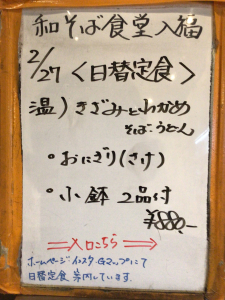 和そば食堂入福
2/27 <日替定食>
温) きざみとわかめ
そば・うどん
・おにぎり(さけ)
・小鉢 2品付
¥880.-
⇒入口こちら⇒
ホームページ インスタ Gマップにて
日替定食 案内しています.